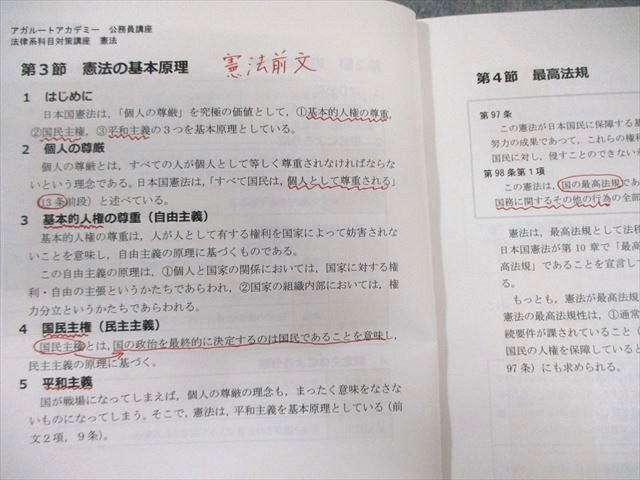 アガルートアカデミー 公務員講座
法律系科目対策講座 憲法
第3節 憲法の基本原理
憲法前文
1 はじめに
日本国憲法は,「個人の尊厳」を究極の価値として,①基本的人権の尊重,
②国民主権,③平和主義の3つを基本原理としている。
2 個人の尊厳
個人の尊厳とは,すべての人が個人として等しく尊重されなければならな
いという理念である。日本国憲法は,「すべて国民は,個人として尊重される」
(13条前段)と述べている。
3 基本的人権の尊重(自由主義)
基本的人権の尊重は,人が人として有する権利を国家によって妨害されな
いことを意味し,自由主義の原理に基づくものである。
この自由主義の原理は,①個人と国家の関係においては,国家に対する権
利・自由の主張というかたちであらわれ,②国家の組織内部においては,権
力分立というかたちであらわれる。
4 国民主権(民主主義)
国民主権とは,国の政治を最終的に決定するのは国民であることを意味し,
民主主義の原理に基づく。
5 平和主義
国が戦場になってしまえば,個人の尊厳の理念も,まったく意味をなさな
いものになってしまう。そこで,憲法は,平和主義を基本原理としている(前
文2項,9条)。
第4節 最高法規
第97条
この憲法が日本国民に保障する基
努力の成果であつて,これらの権利
国民に対し,侵すことのできない
第98条第1項
この憲法は,国の最高法規であ
国務に関するその他の行為の全部
憲法は,最高法規として法秩
日本国憲法が第10章で「最高
高法規」であることを宣言して
る。
もっとも,憲法が最高法規
憲法の最高法規性は,①通常
続要件が課されていること
国民の人権を保障していると
97条)にも求められる。